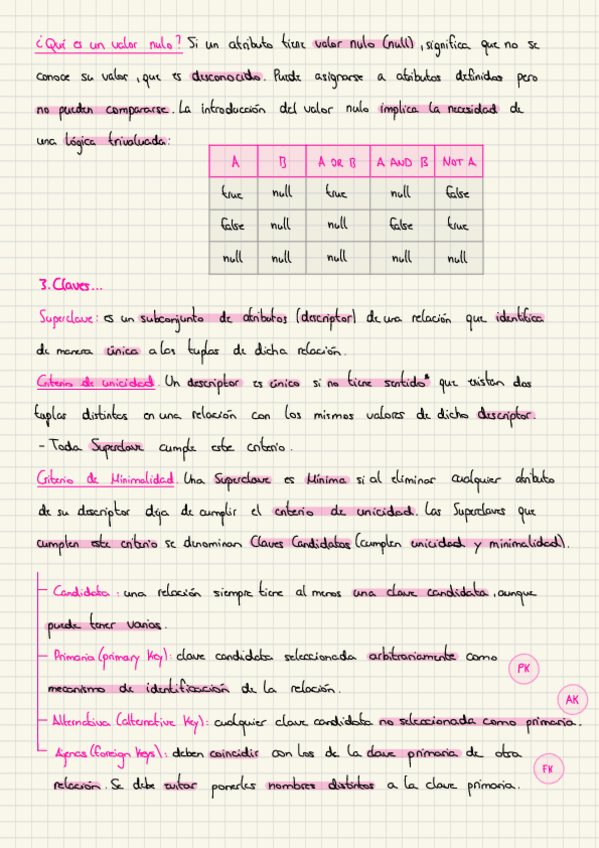 ¿Qué es un valor nulo? Si un atributo tiene valor nulo (null), significa que no se
conoce su valor, que es desconocido. Puede asignarse a atributos definidos pero
no pueden compararse. La introducción del valor nulo implica la necesidad de
una lógica trivaluada:
A B A OR B A AND B NOT A
true null true null false
false null null false true
null null null null null
3. Claves...
Superclave: es un subconjunto de atributos (descriptor) de una relación que identifica
de manera única a las tuplas de dicha relación.
Criterio de unicidad. Un descriptor es único si no tiene sentido* que existan dos
tuplas distintas en una relación con los mismos valores de dicho descriptor.
- Toda Superclave cumple este criterio.
Criterio de Minimalidad. Una Superclave es Mínima si al eliminar cualquier atributo
de su descriptor deja de cumplir el criterio de unicidad. Las Superclaves que
cumplen este criterio se denominan Claves Candidatas (cumplen unicidad y minimalidad).
Candidata: una relación siempre tiene al menos una clave candidata, aunque
puede tener varias.
Primaria (primary key): clave candidata seleccionada arbitrariamente como
PK
mecanismo de identificación de la relación.
AK
Alternativa (alternative key): cualquier clave candidata no seleccionada como primaria.
Ajenas (foreign keys): deben coincidir con los de la clave primaria de otra
FK
relación. Se debe evitar ponerles nombres distintos a la clave primaria.